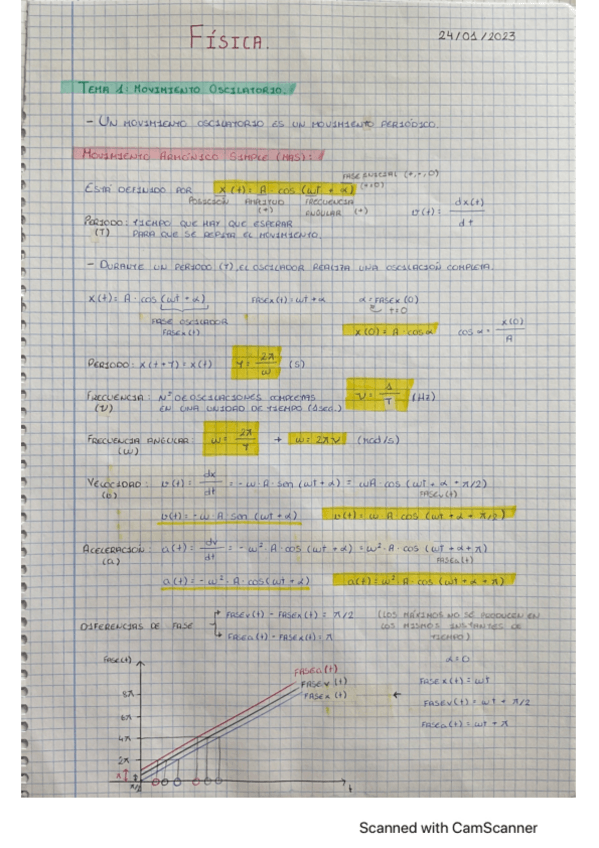 FÍSICA.
24/01/2023
TEMA 1: MOVIMIENTO OSCILATORIO.
- UN MOVIMIENTO OSCILATORIO ES UN MOVIMIENTO PERIÓDICO.
MOVIMIENTO ARMÓNICO SIMPLE (MAS):
FASE INICIAL (+,-,0)
(t=0)
ESTÁ DEFINIDO POR x(t)= A cos (ωt + α)
POSICIÓN AMPLITUD FRECUENCIA
(+) ANGULAR (+)
v(t)= dx(t)/dt
PERIODO: TIEMPO QUE HAY QUE ESPERAR
(T) PARA QUE SE REPITA EL MOVIMIENTO.
- DURANTE UN PERIODO (T), EL OSCILADOR REALIZA UNA OSCILACIÓN COMPLETA.
x(t)= A · cos (ωt + α) FASEx(t)= ωt + α α = FASEx(0)
t=0
FASE OSCILADOR
FASEx(t)
x(0)= A · cosα cosα = x(0)/A
PERIODO: x(t+T)= x(t) T= 2π/ω (s)
FRECUENCIA: Nº DE OSCILACIONES COMPLETAS
(ν) EN UNA UNIDAD DE TIEMPO (1seg.) ν= 1/T (Hz)
FRECUENCIA ANGULAR: ω= 2π/T → ω= 2πν (rad/s)
(ω)
VELOCIDAD: v(t)= dx/dt = -ω · A · sen (ωt + α) = ωA cos (ωt + α + π/2)
(v) FASEv(t)
v(t)= -ω · A · sen (ωt + α) v(t)= ω · A cos (ωt + α + π/2)
ACELERACIÓN: a(t)= dv/dt = -ω² · A · cos (ωt + α) = ω² · A · cos (ωt + α + π)
(a) FASEa(t)
a(t)= -ω² · A · cos(ωt + α) a(t)= ω² · A · cos (ωt + α + π)
DIFERENCIAS DE FASE
FASEv(t) - FASEx(t) = π/2
FASEa(t) - FASEx(t) = π
(LOS MÁXIMOS NO SE PRODUCEN EN
LOS MISMOS INSTANTES DE
TIEMPO)
FASE(t)
FASEa(t)
FASEv(t)
FASEx(t)
8π
6π
4π
2π
π
π/2
t
α=0
← FASEx(t)= ωt
FASEv(t)= ωt + π/2
FASEa(t)= ωt + π
Scanned with CamScanner